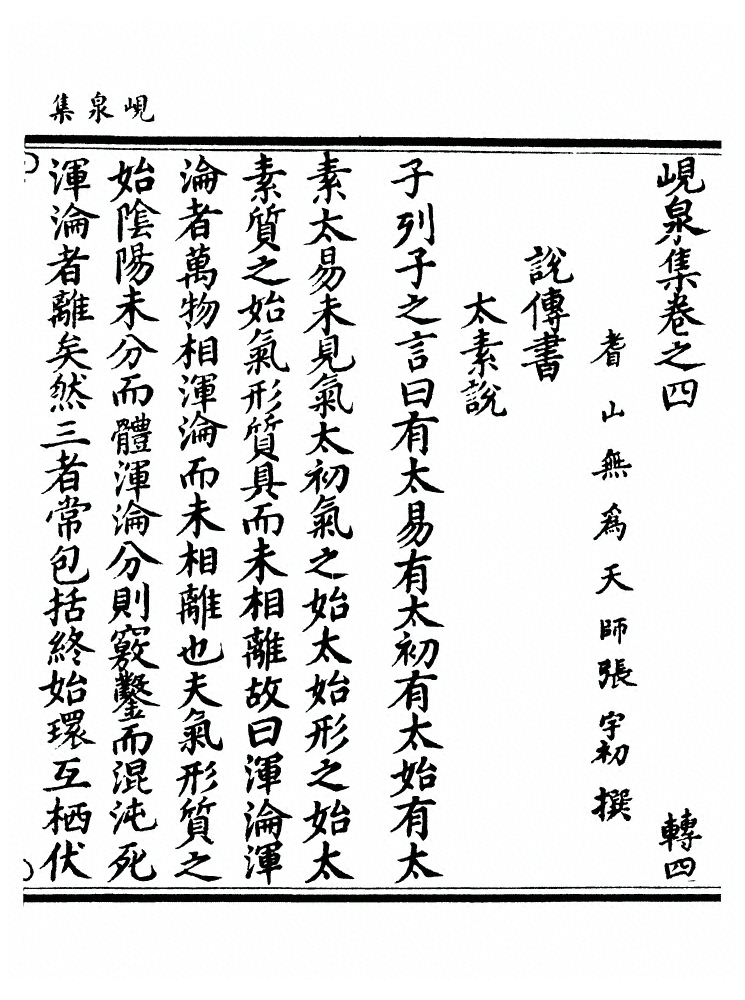 峴泉集
峴泉集卷之四　轉四
耆山無爲天師張宇初撰
說傳書
太素說
子列子之言曰有太易有太初有太始有太
素太易未見氣太初氣之始太始形之始太
素質之始氣形質具而未相離故曰渾淪渾
淪者萬物相渾淪而未相離也夫氣形質之
始陰陽未分而體渾淪分則竅鑿而混沌死
渾淪者離矣然三者常包括終始環互栖伏